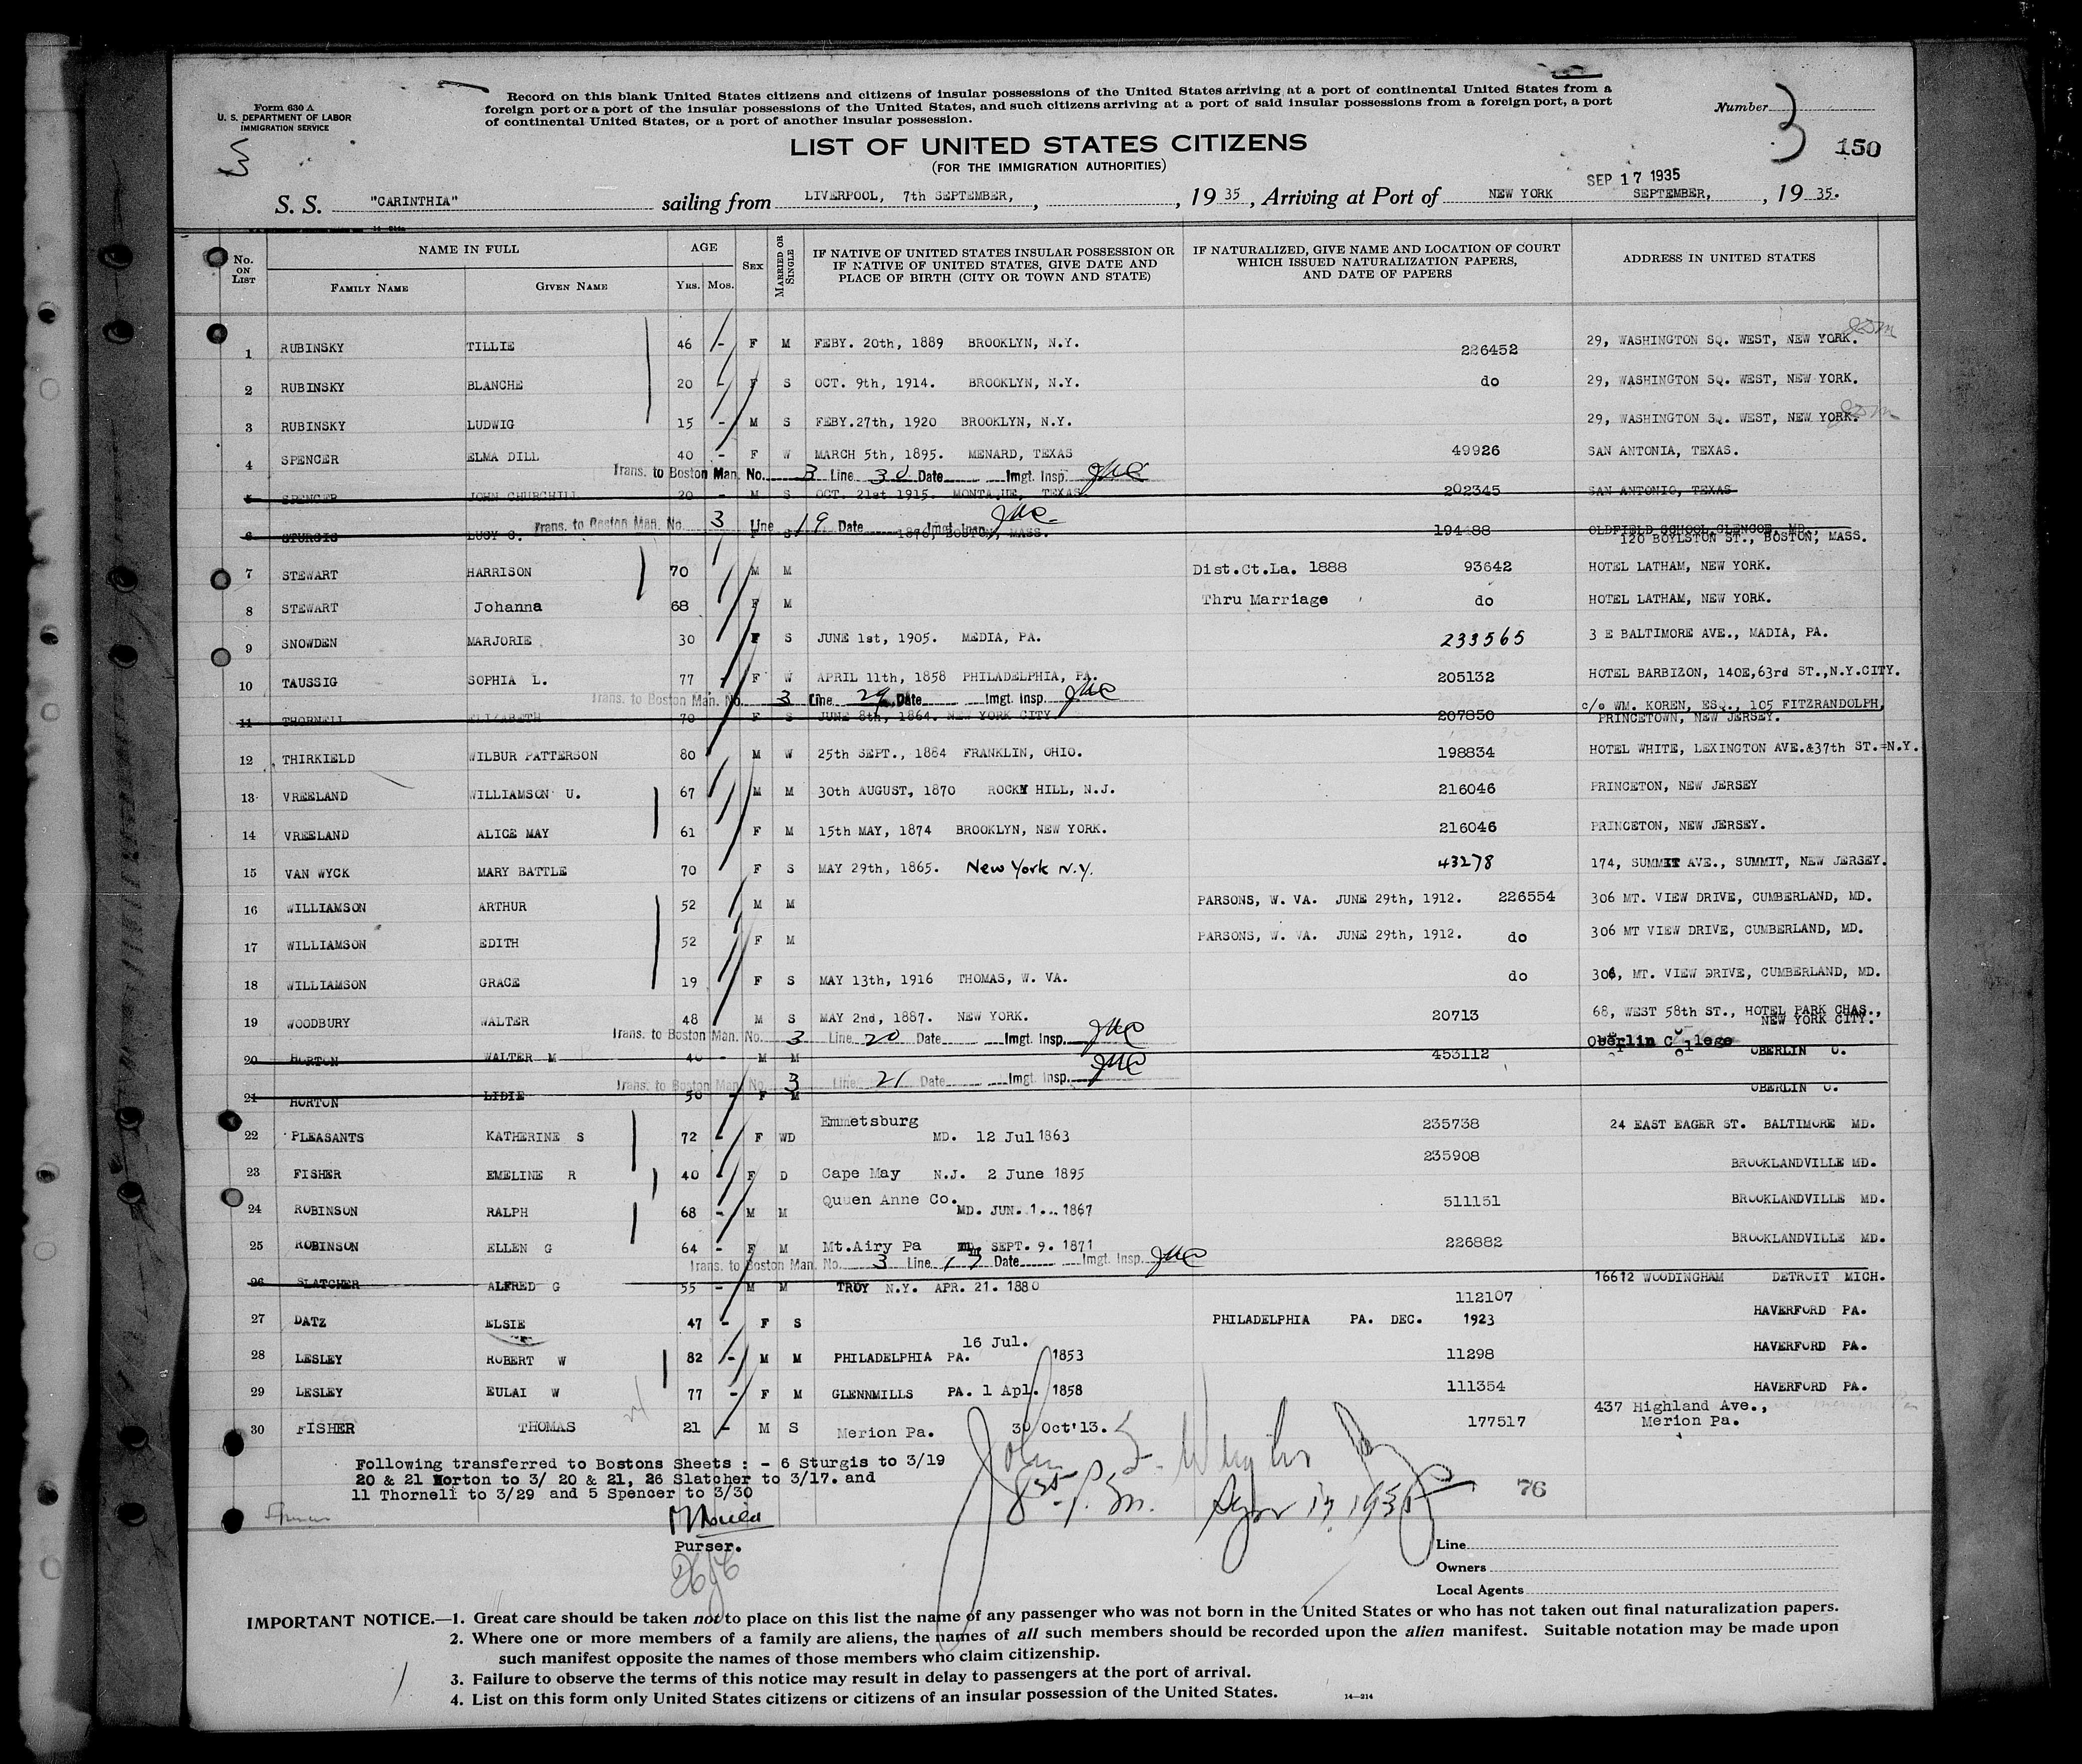 Form 630 A
U. S. DEPARTMENT OF LABOR
IMMIGRATION SERVICE
Record on this blank United States citizens and citizens of insular possessions of the United States arriving at a port of continental United States from a
foreign port or a port of the insular possessions of the United States, and such citizens arriving at a port of said insular possessions from a foreign port, a port
of continental United States, or a port of another insular possession.
Number 3
150
LIST OF UNITED STATES CITIZENS
(FOR THE IMMIGRATION AUTHORITIES)
SEP 17 1935
S. S. "CARINTHIA" sailing from LIVERPOOL, 7th SEPTEMBER, , 19 35 , Arriving at Port of NEW YORK SEPTEMBER, , 19 35.
No. ON LIST NAME IN FULL FAMILY NAME GIVEN NAME AGE YRS. MOS. SEX MARRIED OR SINGLE IF NATIVE OF UNITED STATES INSULAR POSSESSION OR IF NATIVE OF UNITED STATES, GIVE DATE AND PLACE OF BIRTH (CITY OR TOWN AND STATE) IF NATURALIZED, GIVE NAME AND LOCATION OF COURT WHICH ISSUED NATURALIZATION PAPERS, AND DATE OF PAPERS ADDRESS IN UNITED STATES
1 RUBINSKY TILLIE 46 - F M FEBY. 20th, 1889 BROOKLYN, N.Y. 226452 29, WASHINGTON SQ. WEST, NEW YORK.
2 RUBINSKY BLANCHE 20 - F S OCT. 9th, 1914. BROOKLYN, N.Y. do 29, WASHINGTON SQ. WEST, NEW YORK.
3 RUBINSKY LUDWIG 15 - M S FEBY.27th, 1920 BROOKLYN, N.Y. 29, WASHINGTON SQ. WEST, NEW YORK.
4 SPENCER ELMA DILL 40 - F W MARCH 5th, 1895. MENARD, TEXAS 49926 SAN ANTONIA, TEXAS.
Trans. to Boston Man. No. 3 Line 30 Date Imgt. Insp.
5 SPENCER JOHN CHURCHILL 20 - M S OCT. 21st 1915. MONTAGUE, TEXAS 202345 SAN ANTONIO, TEXAS
Trans. to Boston Man. No. 3 Line 19 Date Imgt. Insp.
6 STURGIS LUCY C. F S 1876, BOSTON, MASS. 194488 OLDFIELD SCHOOL, GLENCOE, MD.,
120 BOYLSTON ST., BOSTON, MASS.
7 STEWART HARRISON 70 M M Dist.Ct.La. 1888 93642 HOTEL LATHAM, NEW YORK.
8 STEWART Johanna 68 F M Thru Marriage do HOTEL LATHAM, NEW YORK.
9 SNOWDEN MARJORIE 30 F S JUNE 1st, 1905. MEDIA, PA. 233565 3 E BALTIMORE AVE., MADIA, PA.
10 TAUSSIG SOPHIA L. 77 F W APRIL 11th, 1858 PHILADELPHIA, PA. 205132 HOTEL BARBIZON, 140E,63rd ST.,N.Y.CITY.
Trans. to Boston Man. No. 3 Line 29 Date Imgt. Insp.
11 THORNELL ELIZABETH 70 F S JUNE 8th, 1864. NEW YORK CITY 207850 c/o WM. KOREN, ESQ., 105 FITZRANDOLPH,
PRINCETOWN, NEW JERSEY.
12 THIRKIELD WILBUR PATTERSON 80 M W 25th SEPT., 1854 FRANKLIN, OHIO. 198834 HOTEL WHITE, LEXINGTON AVE.&37th ST.=N.Y.
13 VREELAND WILLIAMSON U. 67 M M 30th AUGUST, 1870 ROCKY HILL, N.J. 216046 PRINCETON, NEW JERSEY
14 VREELAND ALICE MAY 61 F M 15th MAY, 1874 BROOKLYN, NEW YORK. 216046 PRINCETON, NEW JERSEY.
15 VAN WYCK MARY BATTLE 70 F S MAY 29th, 1865. New York N.Y. 43278 174, SUMMIT AVE., SUMMIT, NEW JERSEY.
16 WILLIAMSON ARTHUR 52 M M PARSONS, W. VA. JUNE 29th, 1912. 226554 306 MT. VIEW DRIVE, CUMBERLAND, MD.
17 WILLIAMSON EDITH 52 F M PARSONS, W. VA. JUNE 29th, 1912. do 306 MT VIEW DRIVE, CUMBERLAND, MD.
18 WILLIAMSON GRACE 19 F S MAY 13th, 1916 THOMAS, W. VA. do 306, MT. VIEW DRIVE, CUMBERLAND, MD.
19 WOODBURY WALTER 48 M S MAY 2nd, 1887. NEW YORK. 20713 68, WEST 58th ST., HOTEL PARK CHAS.,
NEW YORK CITY.
Trans. to Boston Man. No. 3 Line 20 Date Imgt. Insp.
20 HORTON WALTER M 40 - M M 453112 Oberlin College OBERLIN O.
Trans. to Boston Man. No. 3 Line 21 Date Imgt. Insp.
21 HORTON LIDIE 50 - F M OBERLIN O.
22 PLEASANTS KATHERINE S 72 - F WD Emmetsburg MD. 12 Jul 1863 235738 24 EAST EAGER ST. BALTIMORE MD.
23 FISHER EMELINE R 40 - F D Cape May N.J. 2 June 1895 235908 BROOKLANDVILLE MD.
24 ROBINSON RALPH 68 - M M Quuen Anne Co. MD. JUN. 1... 1867 511151 BROOKLANDVILLE MD.
25 ROBINSON ELLEN G 64 - F M Mt.Airy Pa SEPT. 9. 1871 226882 BROOKLANDVILLE MD.
Trans. to Boston Man. No. 3 Line 17 Date Imgt. Insp.
26 SLATCHER ALFRED G 55 - M M TROY N.Y. APR. 21. 1880 112107 16612 WOODINGHAM DETROIT MICH.
27 DATZ ELSIE 47 - F S PHILADELPHIA PA. DEC. 1923 HAVERFORD PA.
28 LESLEY ROBERT W 82 - M M PHILADELPHIA PA. 16 Jul. 1853 11298 HAVERFORD PA.
29 LESLEY EULAI W 77 - F M GLENNMILLS PA. 1 Apl. 1858 111354 HAVERFORD PA.
30 FISHER THOMAS 21 - M S Merion Pa. 30 Oct'13. 177517 437 Highland Ave.,
Merion Pa.
Following transferred to Bostons Sheets : - 6 Sturgis to 3/19
20 & 21 Horton to 3/ 20 & 21, 26 Slatcher to 3/17. and
11 Thornell to 3/29 and 5 Spencer to 3/30
76
Purser.
Line
Owners
Local Agents
IMPORTANT NOTICE.—1. Great care should be taken not to place on this list the name of any passenger who was not born in the United States or who has not taken out final naturalization papers.
2. Where one or more members of a family are aliens, the names of all such members should be recorded upon the alien manifest. Suitable notation may be made upon
such manifest opposite the names of those members who claim citizenship.
3. Failure to observe the terms of this notice may result in delay to passengers at the port of arrival.
4. List on this form only United States citizens or citizens of an insular possession of the United States.
14—214